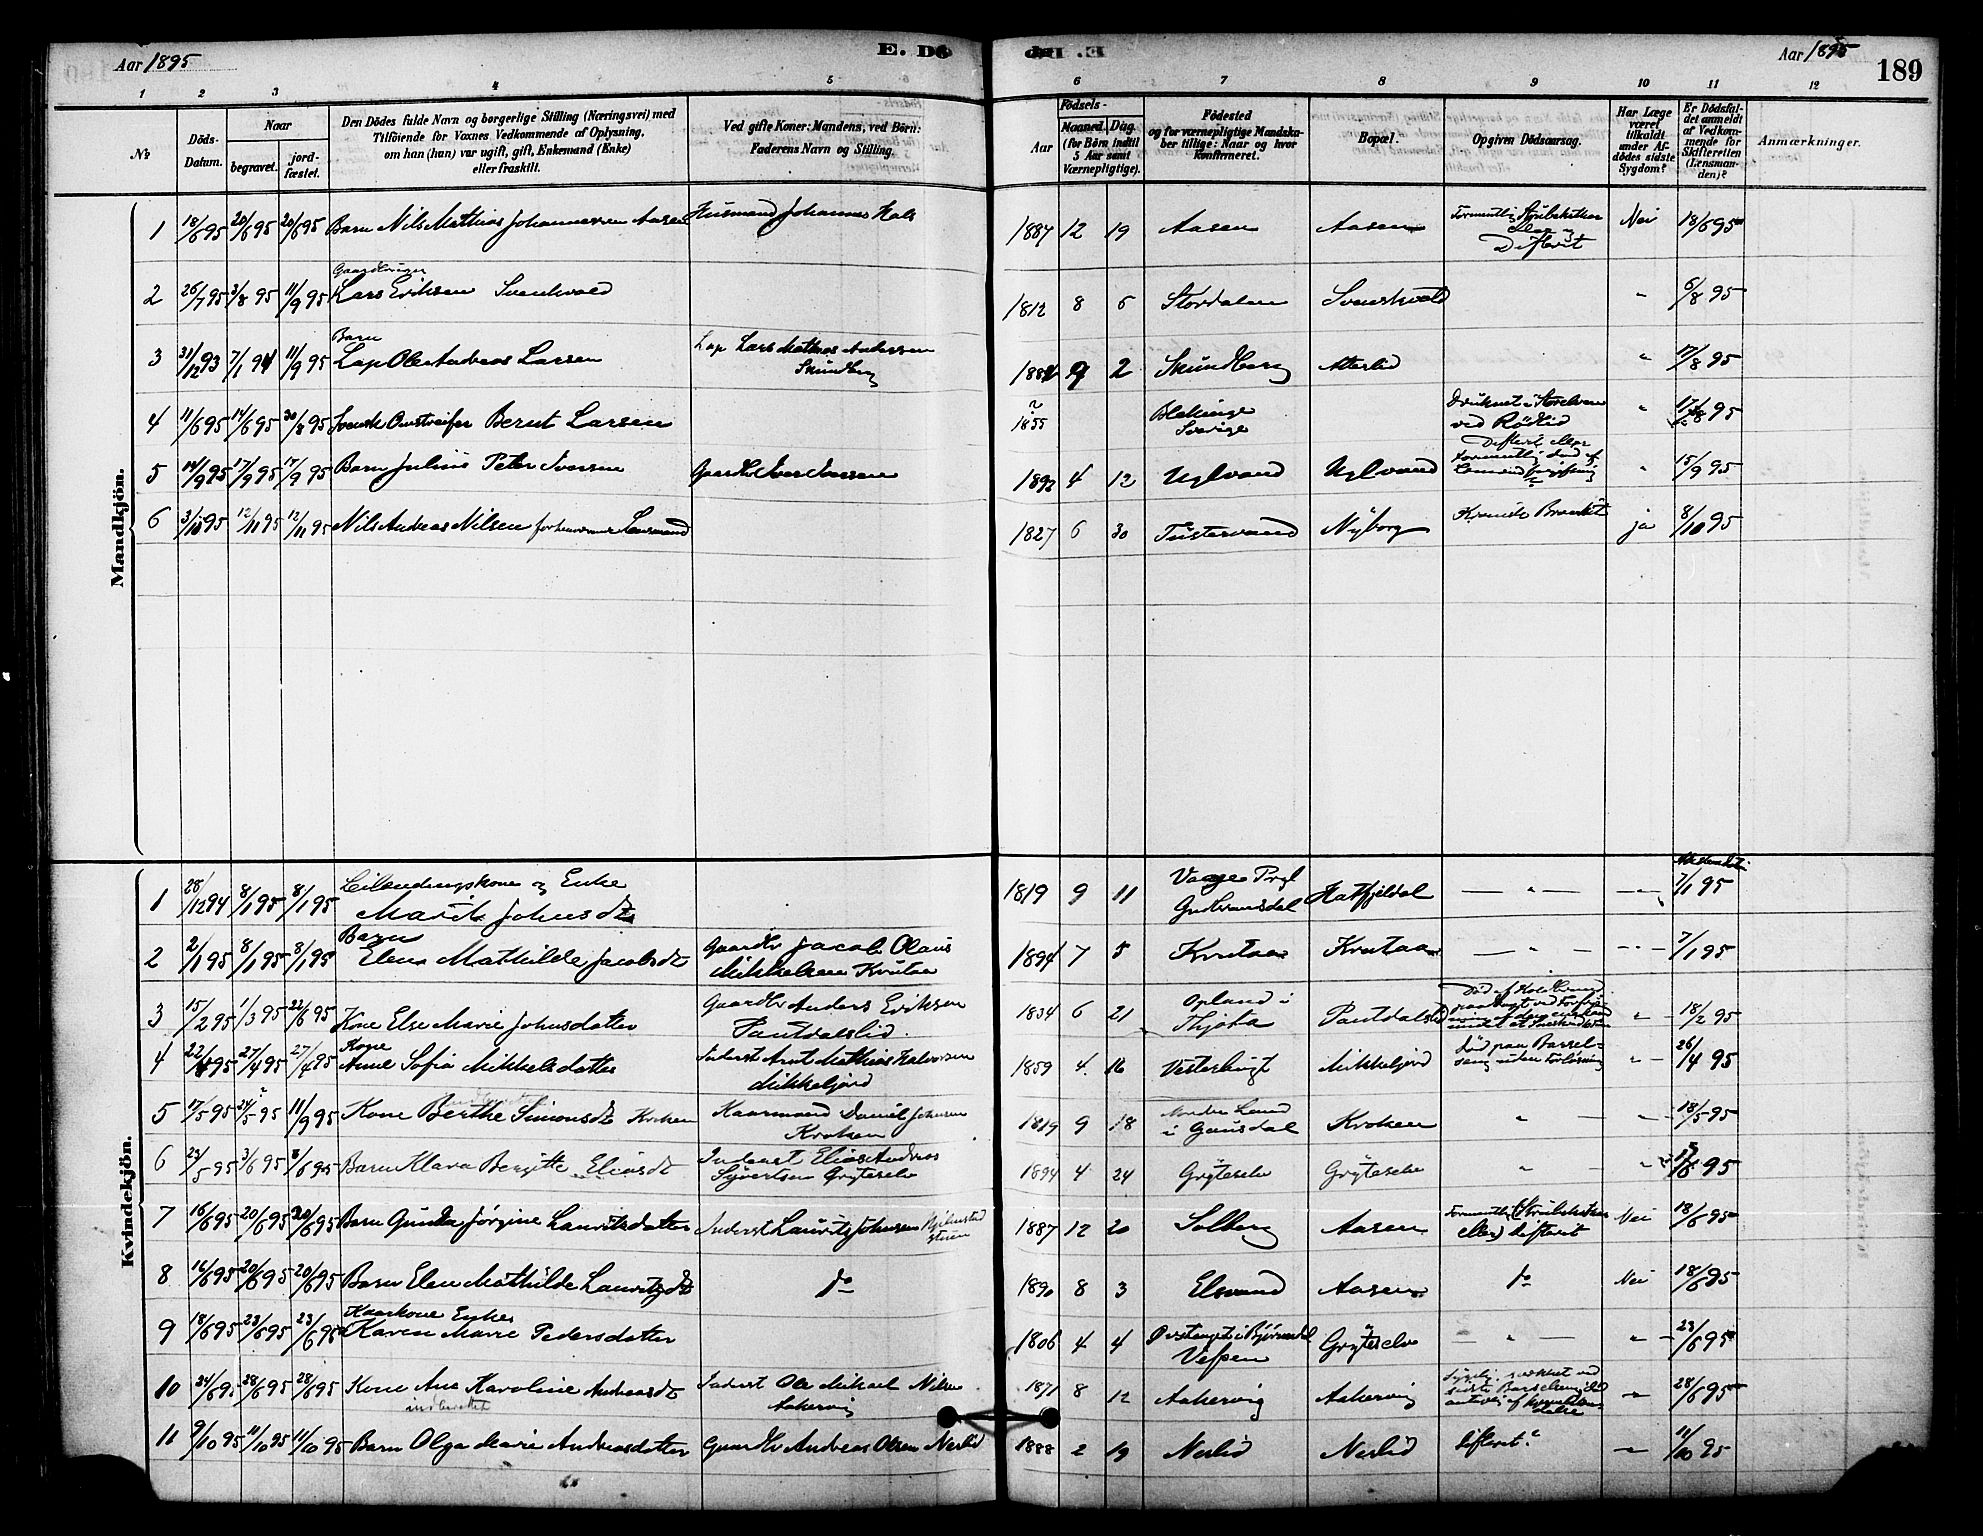 Aar 1895
E. Dö
Aar 1895
189
1 2 3 4 5 6 7 8 9 10 11 12
№
Döds-Datum.
Naar
begravet.
jord-fæstet.
Den Dödes fulde Navn og borgerlige Stilling (Næringsvei) med
Tilföiende for Voxnes Vedkommende af Oplysning,
om han (hun) var ugift, gift, Enkemand (Enke)
eller fraskilt.
Ved gifte Koner: Mandens, ved Börn:
Faderens Navn og Stilling.
Födsels-
Aar
Maaned. Dag.
(for Börn indtil
5 Aar samt
Værnepligtige).
Födested
og for værnepligtige Mandska-
ber tillige: Naar og hvor
konfirmeret.
Bopæl.
Opgiven Dödsaarsag.
Har Læge
været
tilkaldt
under Af-
dödes sidste
Sygdom?
Er Dödsfal-
det anmeldt
af Vedkom-
mende for
Skifteretten
(Lensman-
den)?
Anmærkninger.
Mandkjön.
1 18/6 95 20/6 95 20/6 95 Barn Nils Mathias Johannessen Aasen Husmand Johannes 1887 12 19 Aasen Aasen Formentlig Strubehoste eller Difterit Nei 18/6 95
2 26/7 95 3/8 95 11/9 95 Gaardbruger Lars Eriksen Svenskvold 1812 8 6 Stordalen Svenskvold " 6/8 95
3 31/12 93 7/1 94 11/9 95 Barn Lap Ole Andreas Larsen Lap Lars Mathias Andersen 9 2 " 17/8 95
4 11/6 95 14/6 95 30/8 95 Svensk Omstreifer Bernt Larsen 1855 Blekinge Sverige Druknet i Storelven ved Rödlid " 95
5 14/9 95 17/9 95 17/9 95 Barn Julius Peter Iversen Gaardbr Iver Iversen 1892 4 12 Uglvand Uglvand Difterit eller formentlig " 15/9 95
6 3/10 95 12/11 95 12/11 95 Nils Andreas Nilsen forhenværende Lensmand 1827 6 30 Tustervand Nyborg Kronisk Bronkit ja 8/10 95
Kvindekjön.
1 28/12 94 8/1 95 8/1 95 Leilendingskone og Enke Marit Johnsdt 1819 9 11 Vaage Prgl Gudbransdal Hatfjeldal — " — 7/1 95
2 2/1 95 8/1 95 8/1 95 Barn Elen Mathilde Jacobsdt Gaardbr Jacob Olaus Mikkelsen Krutaa 1894 7 5 Krutaa Krutaa — " — 7/1 95
3 15/2 95 1/3 95 22/6 95 Kone Else Marie Johnsdatter Gaardbr Anders Eriksen Pantdalslid. 1834 6 21 Opland i Thjøta Pantdalslid " 18/2 95
4 22/4 95 27/4 95 27/4 95 Kone Anne Sofia Mikkelsdatter Inderst Arnt Mathias Halvorsen Mikkeljord 1859 4 16 Vesterbugt Mikkeljord død paa Barselseng uden Forløsning " 26/4 95
5 17/5 95 24/5 95 11/9 95 Kone Berthe Simonsdt Kroken Kaarmand Daniel Johnsen Kroken 1819 9 18 Nordre Land i Gausdal Kroken " 18/5 95
6 24/5 95 3/6 95 3/6 95 Barn Klara Bergitte Eliasdt Inderst Elias Andreas Syvertsen Gryteselv 1894 4 24 Gryteselv Gryteselv " " 95
7 16/6 95 20/6 95 20/6 95 Barn Gunda Jørgine Lauritsdatter Inderst Laurits Johnsen 1887 12 20 Solberg Aasen Formentlig Strubehoste eller Difterit Nei 18/6 95
8 16/6 95 20/6 95 20/6 95 Barn Elen Mathilde Lauritzdt do 1890 8 3 Elsvand Aasen do Nei 18/6 95
9 18/6 95 23/6 95 23/6 95 Kaarkone Enke Karen Marie Pedersdatter 1806 4 4 Vefsen Gryteselv — " — " 23/6 95
10 24/6 95 28/6 95 28/6 95 Kone Ane Karoline Andersdt indberettet Inderst Ole Mikael Nilsen Aakervig 1871 8 12 Aakervig Aakervig " 28/6 95
11 9/10 95 11/10 95 11/10 95 Barn Olga Marie Andreasdatter Gaardbr Andreas Olsen Neslid 1888 2 19 Neslid Neslid Difterit? " 11/10 95